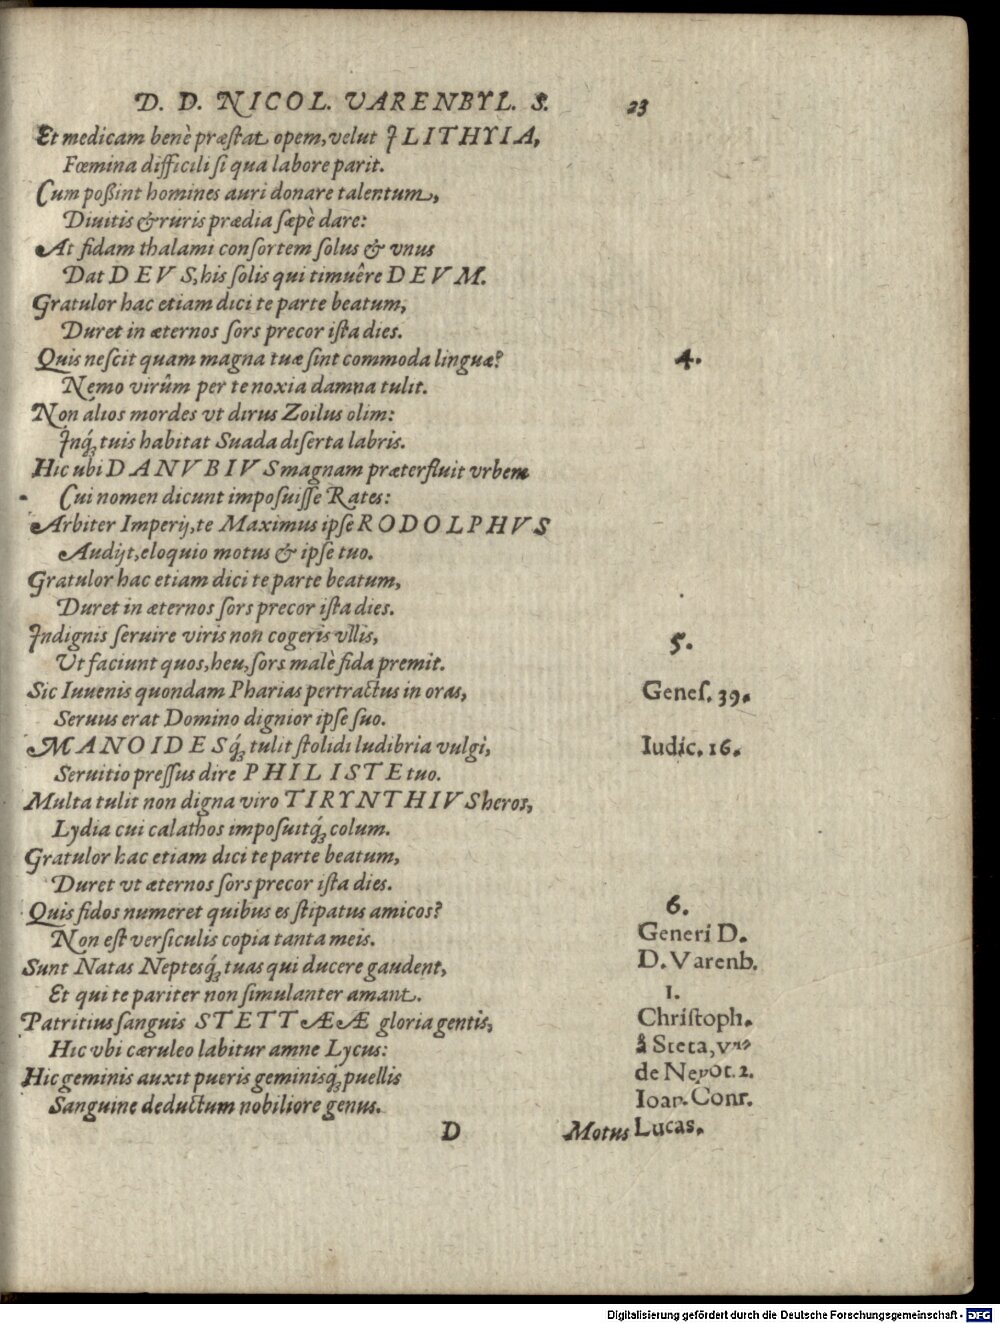 D. D. NICOL. VARENBYL. S. 23
Et medicam benè præſtat opem, velut ILITHYIA,
Fœmina difficili ſi qua labore parit.
Cum poßint homines auri donare talentum,
Diuitis & ruris prædia ſæpè dare:
At fidam thalami conſortem ſolus & vnus
Dat DEVS, his ſolis qui timuêre DEVM.
Gratulor hac etiam dici te parte beatum,
Duret in æternos ſors precor iſta dies.
Quis neſcit quam magna tuæ ſint commoda linguæ? 4.
Nemo virûm per te noxia damna tulit.
Non alios mordes vt dirus Zoilus olim:
Inq́; tuis habitat Suada diſerta labris.
Hic ubi DANVBIVS magnam præterfluit vrbem
Cui nomen dicunt impoſuiſſe Rates:
Arbiter Imperij, te Maximus ipſe RODOLPHVS
Audijt, eloquio motus & ipſe tuo.
Gratulor hac etiam dici te parte beatum,
Duret in æternos ſors precor iſta dies.
Indignis ſeruire viris non cogeris vllis, 5.
Ut faciunt quos, heu, ſors malè fida premit.
Sic Iuuenis quondam Pharias pertractus in oras, Geneſ. 39.
Seruus erat Domino dignior ipſe ſuo.
MANOIDESq́; tulit ſtolidi ludibria vulgi, Iudic. 16.
Seruitio preſſus dire PHILISTE tuo.
Multa tulit non digna viro TIRYNTHIVS heros,
Lydia cui calathos impoſuitq́; colum.
Gratulor hac etiam dici te parte beatum,
Duret vt æternos ſors precor iſta dies.
Quis fidos numeret quibus es ſtipatus amicos? 6.
Non eſt verſiculis copia tanta meis. Generi D.
Sunt Natas Neptesq́; tuas qui ducere gaudent, D. Varenb.
Et qui te pariter non ſimulanter amant. 1.
Patritius ſanguis STETTÆÆ gloria gentis, Chriſtoph.
Hic vbi cæruleo labitur amne Lycus: â Steta, vnꝰ
Hic geminis auxit pueris geminisq́; puellis de Nepot. 2.
Sanguine deductum nobiliore genus. Ioan. Conr.
D Motus Lucas.
Digitalisierung gefördert durch die Deutsche Forschungsgemeinschaft - DFG